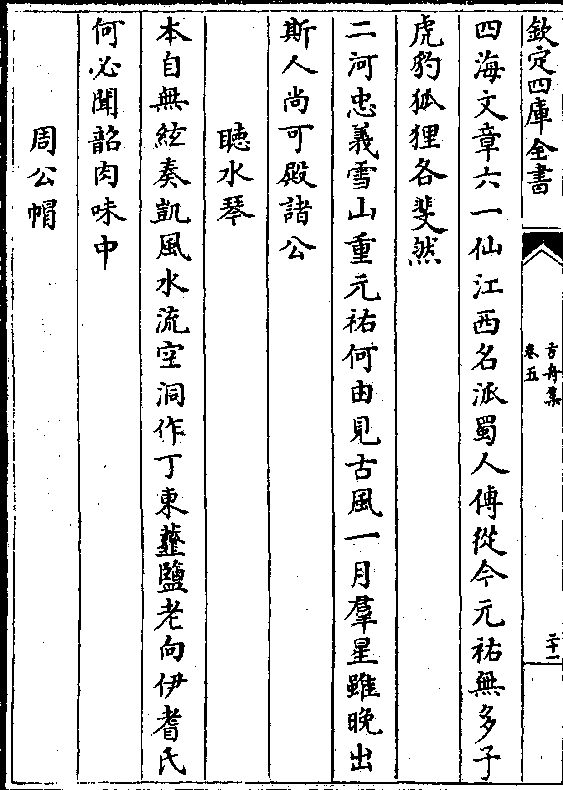 欽定四庫全書
方舟集
卷五
二十一
四海文章六一仙江西名派蜀人傅從今元祐無多子
虎豹狐狸各斐然
二河忠義雪山重元祐何由見古風一月羣星雖晚出
斯人尚可殿諸公
聽水琴
本自無絃奏凱風水流空洞作丁東虀鹽老向伊耆氏
何必聞韶肉味中
周公帽